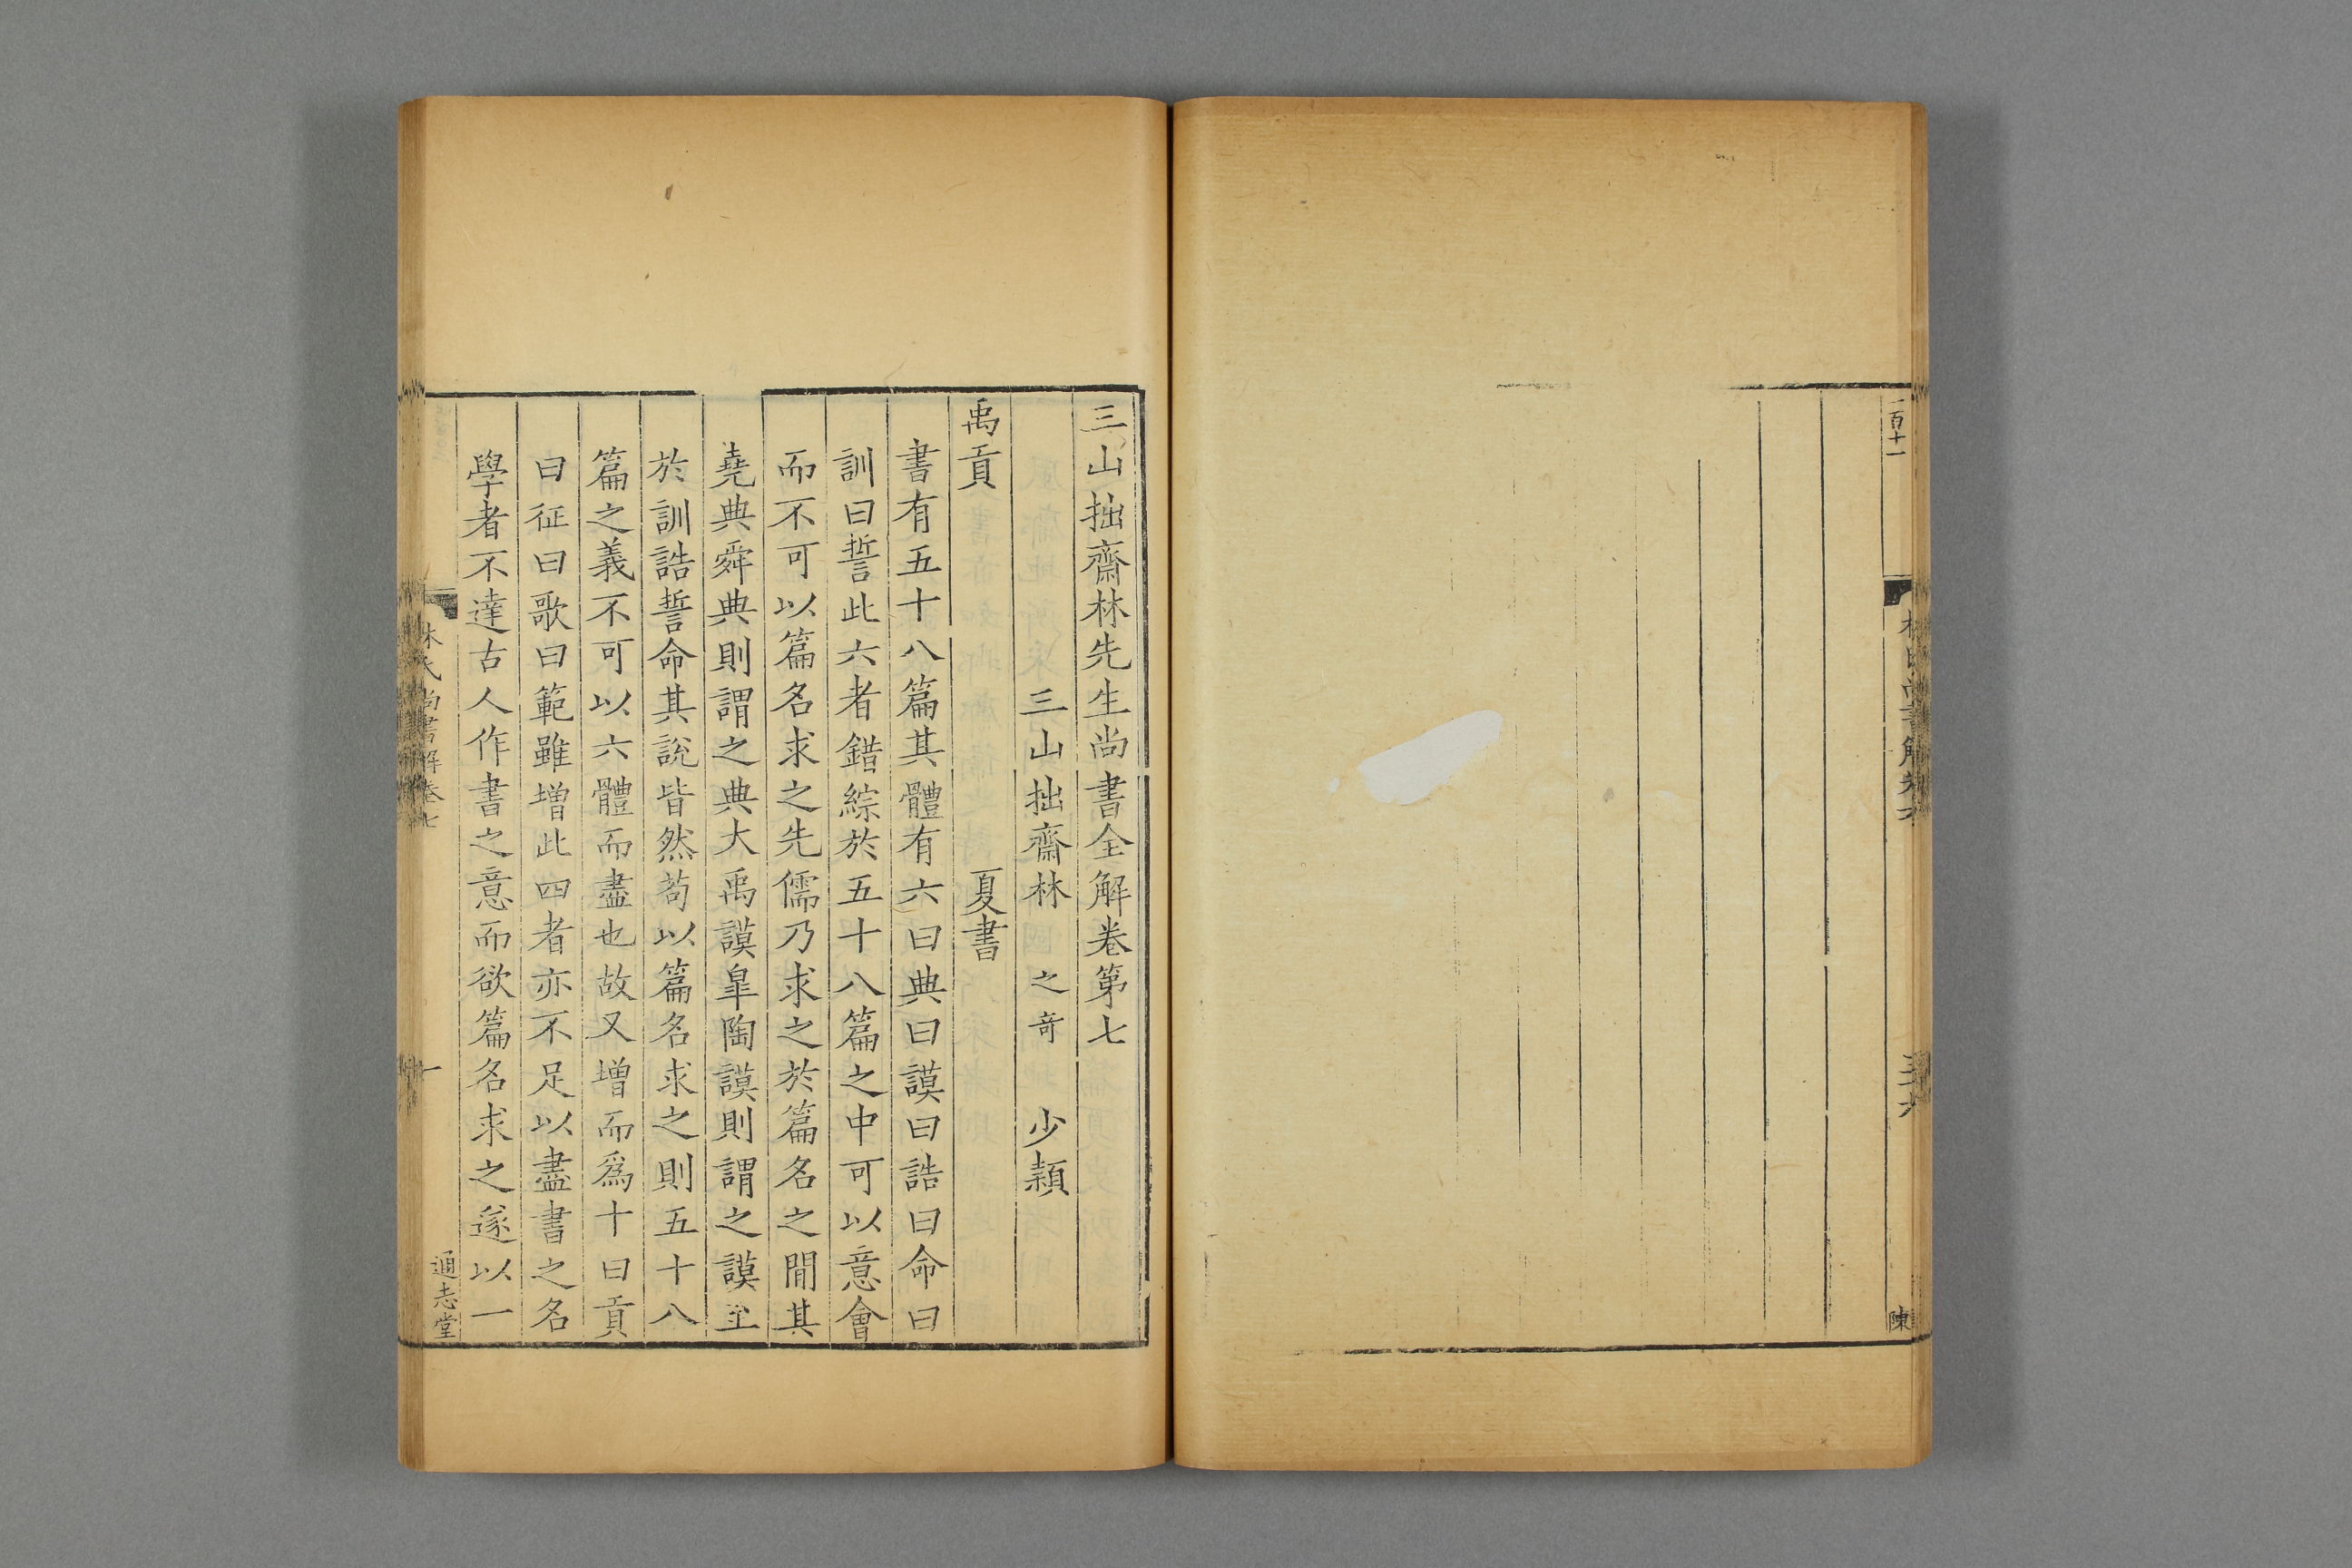 一百十一
林氏尚書解卷六
三十六
陳
三山拙齋林先生尚書全解卷第七
三山拙齋林之奇 少穎
禹貢 夏書
書有五十八篇其體有六曰典曰謨曰誥曰命曰
訓曰誓此六者錯綜於五十八篇之中可以意會
而不可以篇名求之先儒乃求之於篇名之間其
堯典舜典則謂之典大禹謨皐陶謨則謂之謨至
於訓誥誓命其說皆然苟以篇名求之則五十八
篇之義不可以六體而盡也故又增而爲十曰貢
曰征曰歌曰範雖增此四者亦不足以盡書之名
學者不達古人作書之意而欲篇名求之遂以一
林氏尚書解卷七
一
通志堂